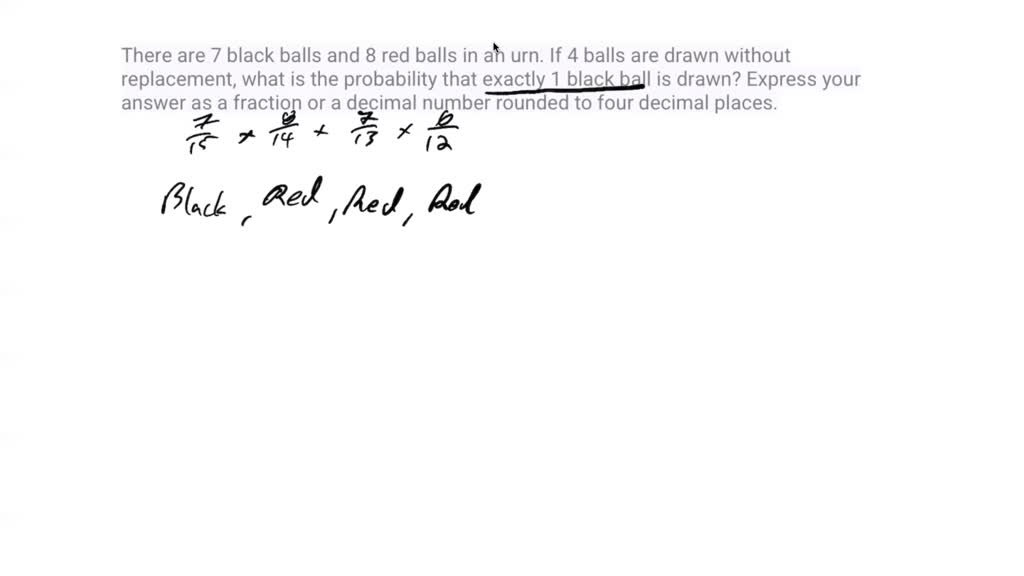 There are 7 black balls and 8 red balls in an urn. If 4 balls are drawn without
replacement, what is the probability that exactly 1 black ball is drawn? Express your
answer as a fraction or a decimal number rounded to four decimal places.
7/15 × 8/14 × 7/13 × 6/12
Black, Red, Red, Red